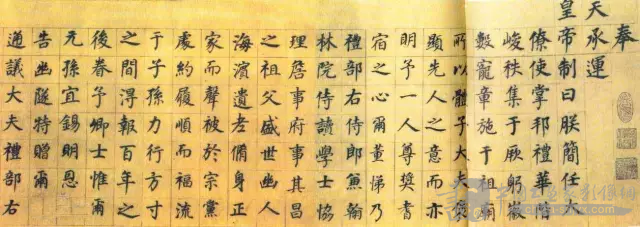 奉
天承運
皇帝制曰朕簡任大
僚使掌邦禮華階
峻秩集于厥躬徽
數寵章施于祖禰
所以體予大夫榮
顯先人之意而亦
明予一人尊奬耆
宿之心爾董悌乃
禮部右侍郎兼翰
林院侍讀學士協
理詹事府事其昌
之祖父盛世幽人
海濱遺老脩身正
家而聲被於宗黨
處約履順而福流
于子孫力行方寸
之間淂報百年之
後眷予卿士惟爾
元孫宜錫明恩
告幽隧特贈爾
通議大夫禮部右